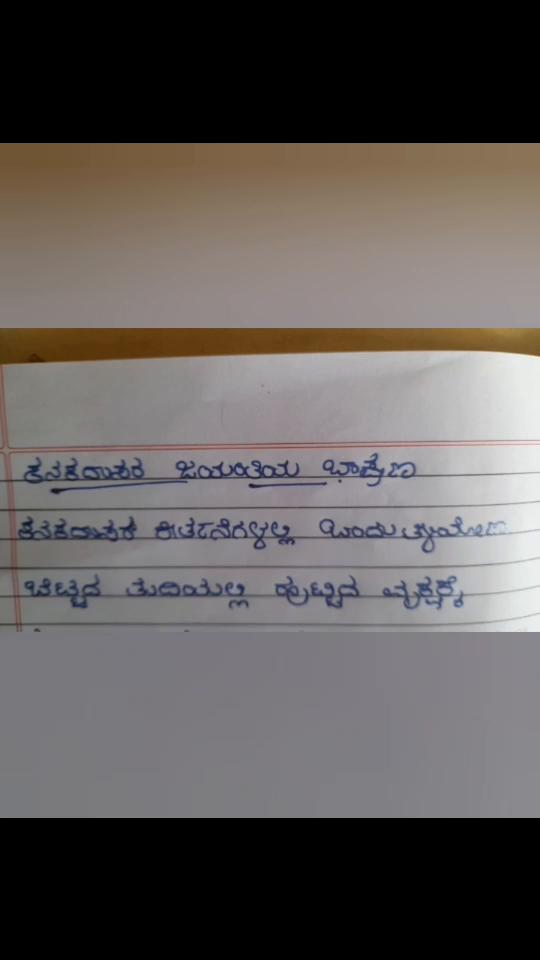 ಕನಕದಾಸರ ಜಯಂತಿಯ ಭಾಷಣ
ಕನಕದಾಸರ ಕೀರ್ತನೆಗಳಲ್ಲಿ ಒಂದು
ಬೆಟ್ಟದ ತುದಿಯಲ್ಲಿ ಹುಟ್ಟಿದ ವೃಕ್ಷಕ್ಕೆ